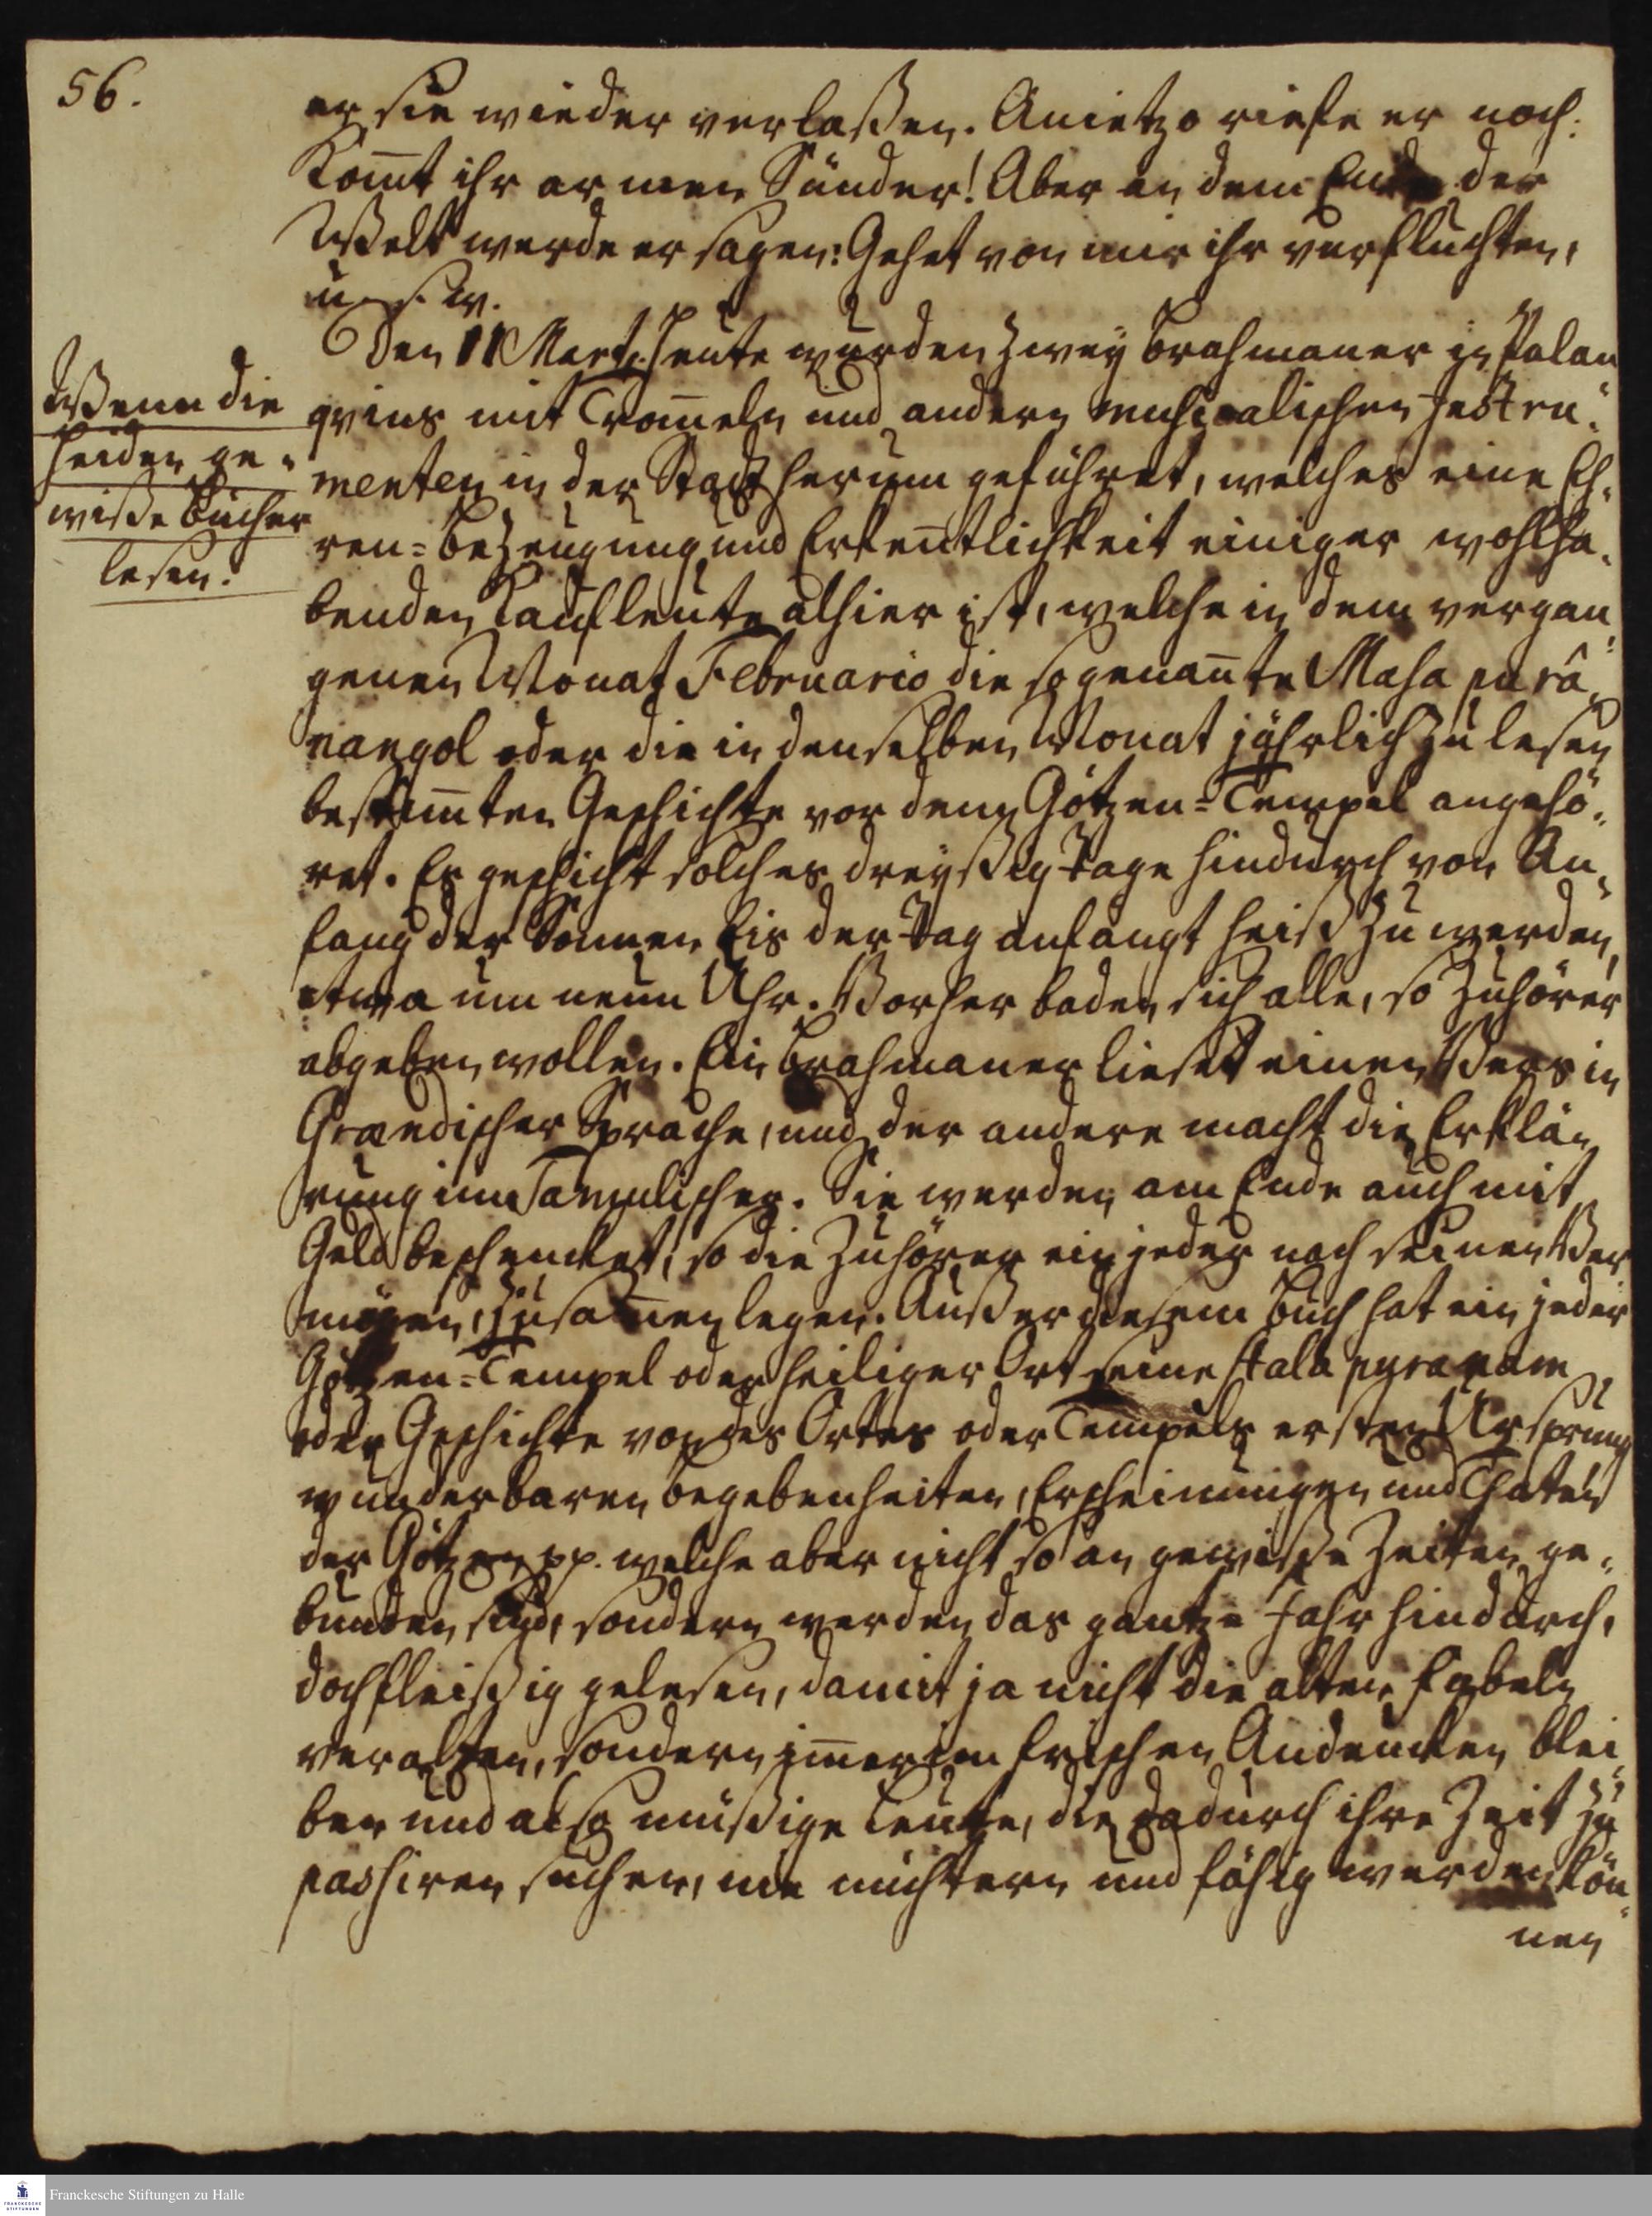 56.
er sie wieder verlaßen. Anietzo riefe er noch:
Kom̅t ihr armen Sünder! Aber an dem Ende der
Welt werde er sagen: Gehet von mir ihr verfluchten,
u. s. w.
Den 11 Mart. Heute wurden zwey Brahmaner in Palan
qvins mit Trom̅eln und andern musicalischen Jnstru„
menten in der Stadt herum geführet, welches eine Eh„
ren=Bezeugung und Erken̅tlichkeit einiger wohlha„
benden Kaufleute alhier ist, welche in dem vergan„
genen Monat Februario die sogenan̅te Maha purâ„
nangol oder die in denselben Monat jährlich zu lesen
bestim̅ten Geschichte vor dem Götzen=Tempel angehö„
ret. Es geschicht solches dreyßig Tage hindurch von An„
fang der Sonnen bis der Tag anfängt heiß zu werden,
etwa um neun Uhr. Vorher baden sich alle, so Zuhörer
abgeben wollen. Ein Brahmaner lieset einen Vers in
Grændischer Sprache, und der andere macht die Erklä„
rung im Tamulischen. Sie werden am Ende auch mit
Geld beschencket, so die Zuhörer ein jeder nach seinen Ver
mögen, zusam̅en legen. Außer diesem Buch hat ein jeder
Götzen=Tempel oder heiliger Ort seine stala puranam
oder Geschichte von des Ortes oder Tempels ersten Ursprung
wunderbaren Begebenheiten, Erscheinungen und Thaten
der Götzen pp. welche aber nicht so an gewiße Zeiten ge„
bunden sind, sondern werden das gantze Jahr hindurch,
doch fleißig gelesen, damit ja nicht die alten Fabeln
veralten, sondern im̅er im frischen Andencken blei„
ben und also müßige Leute, die dadurch ihre Zeit zu
passiren suchen, nie nüchtern und fähig werden kön„
nen
Wenn die
Heiden ge„
wiße Bücher
lesen.
Franckesche Stiftungen zu Halle